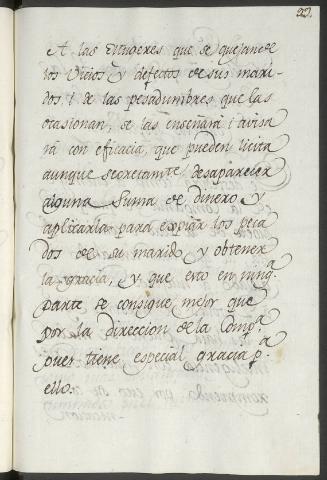 22.
A las Mugeres que se quejan de
los Vicios y defectos de sus mari-
dos i de las pesadumbres que las
ocasionan, se las enseñará i avisa
rá con eficacia, que pueden licita
aunque secretamte. desaparecer
alguna suma de dinero, y
aplicarla para expiar los peca
dos de su marido y obtener
la gracia, y que esto en ninga.
parte se consigue mejor que
por la direccion de la Compa.
pues tiene especial gracia pa.
ello.